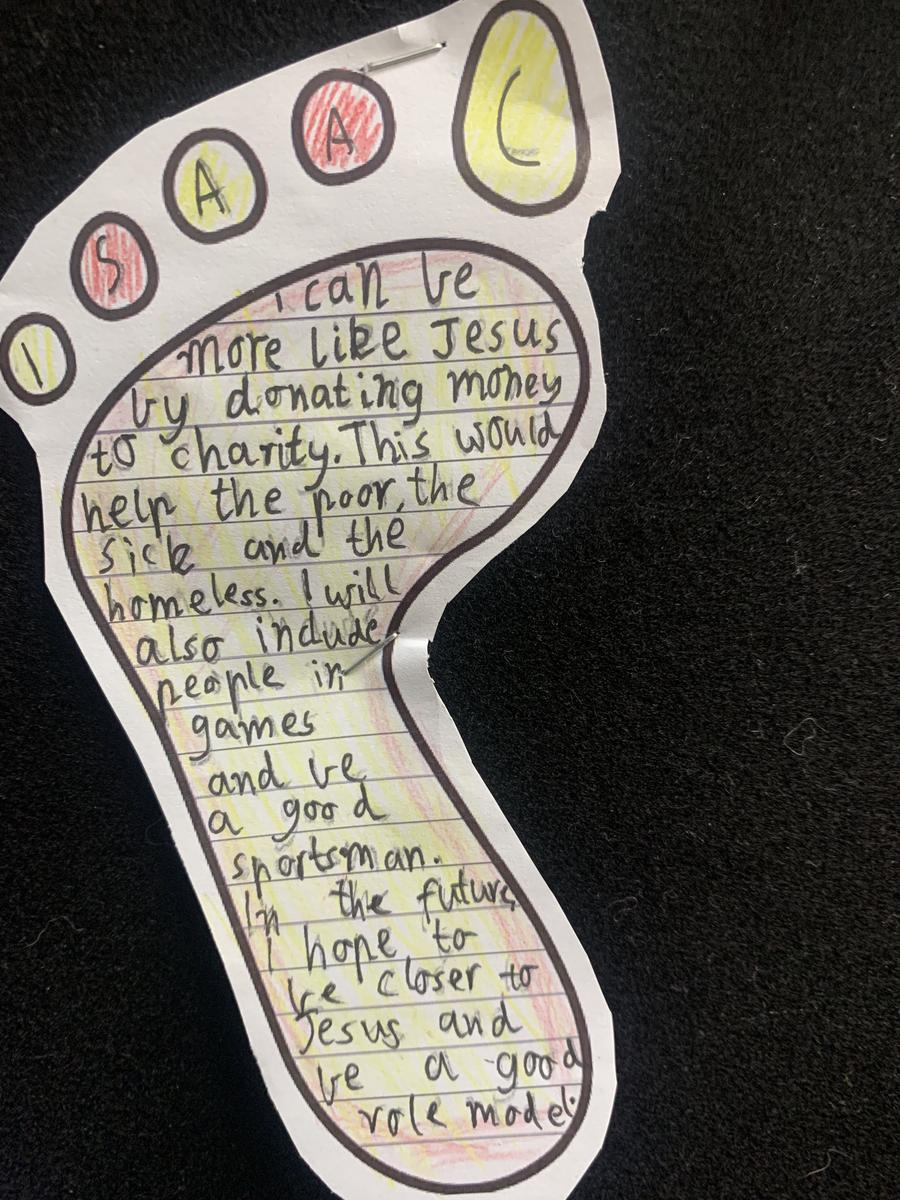 I S A A C
I can be
more like Jesus
by donating money
to charity. This would
help the poor, the
sick and the
homeless. I will
also include
people in
games
and be
a good
sportsman.
In the future
I hope to
be closer to
Jesus and
be a good
role model.